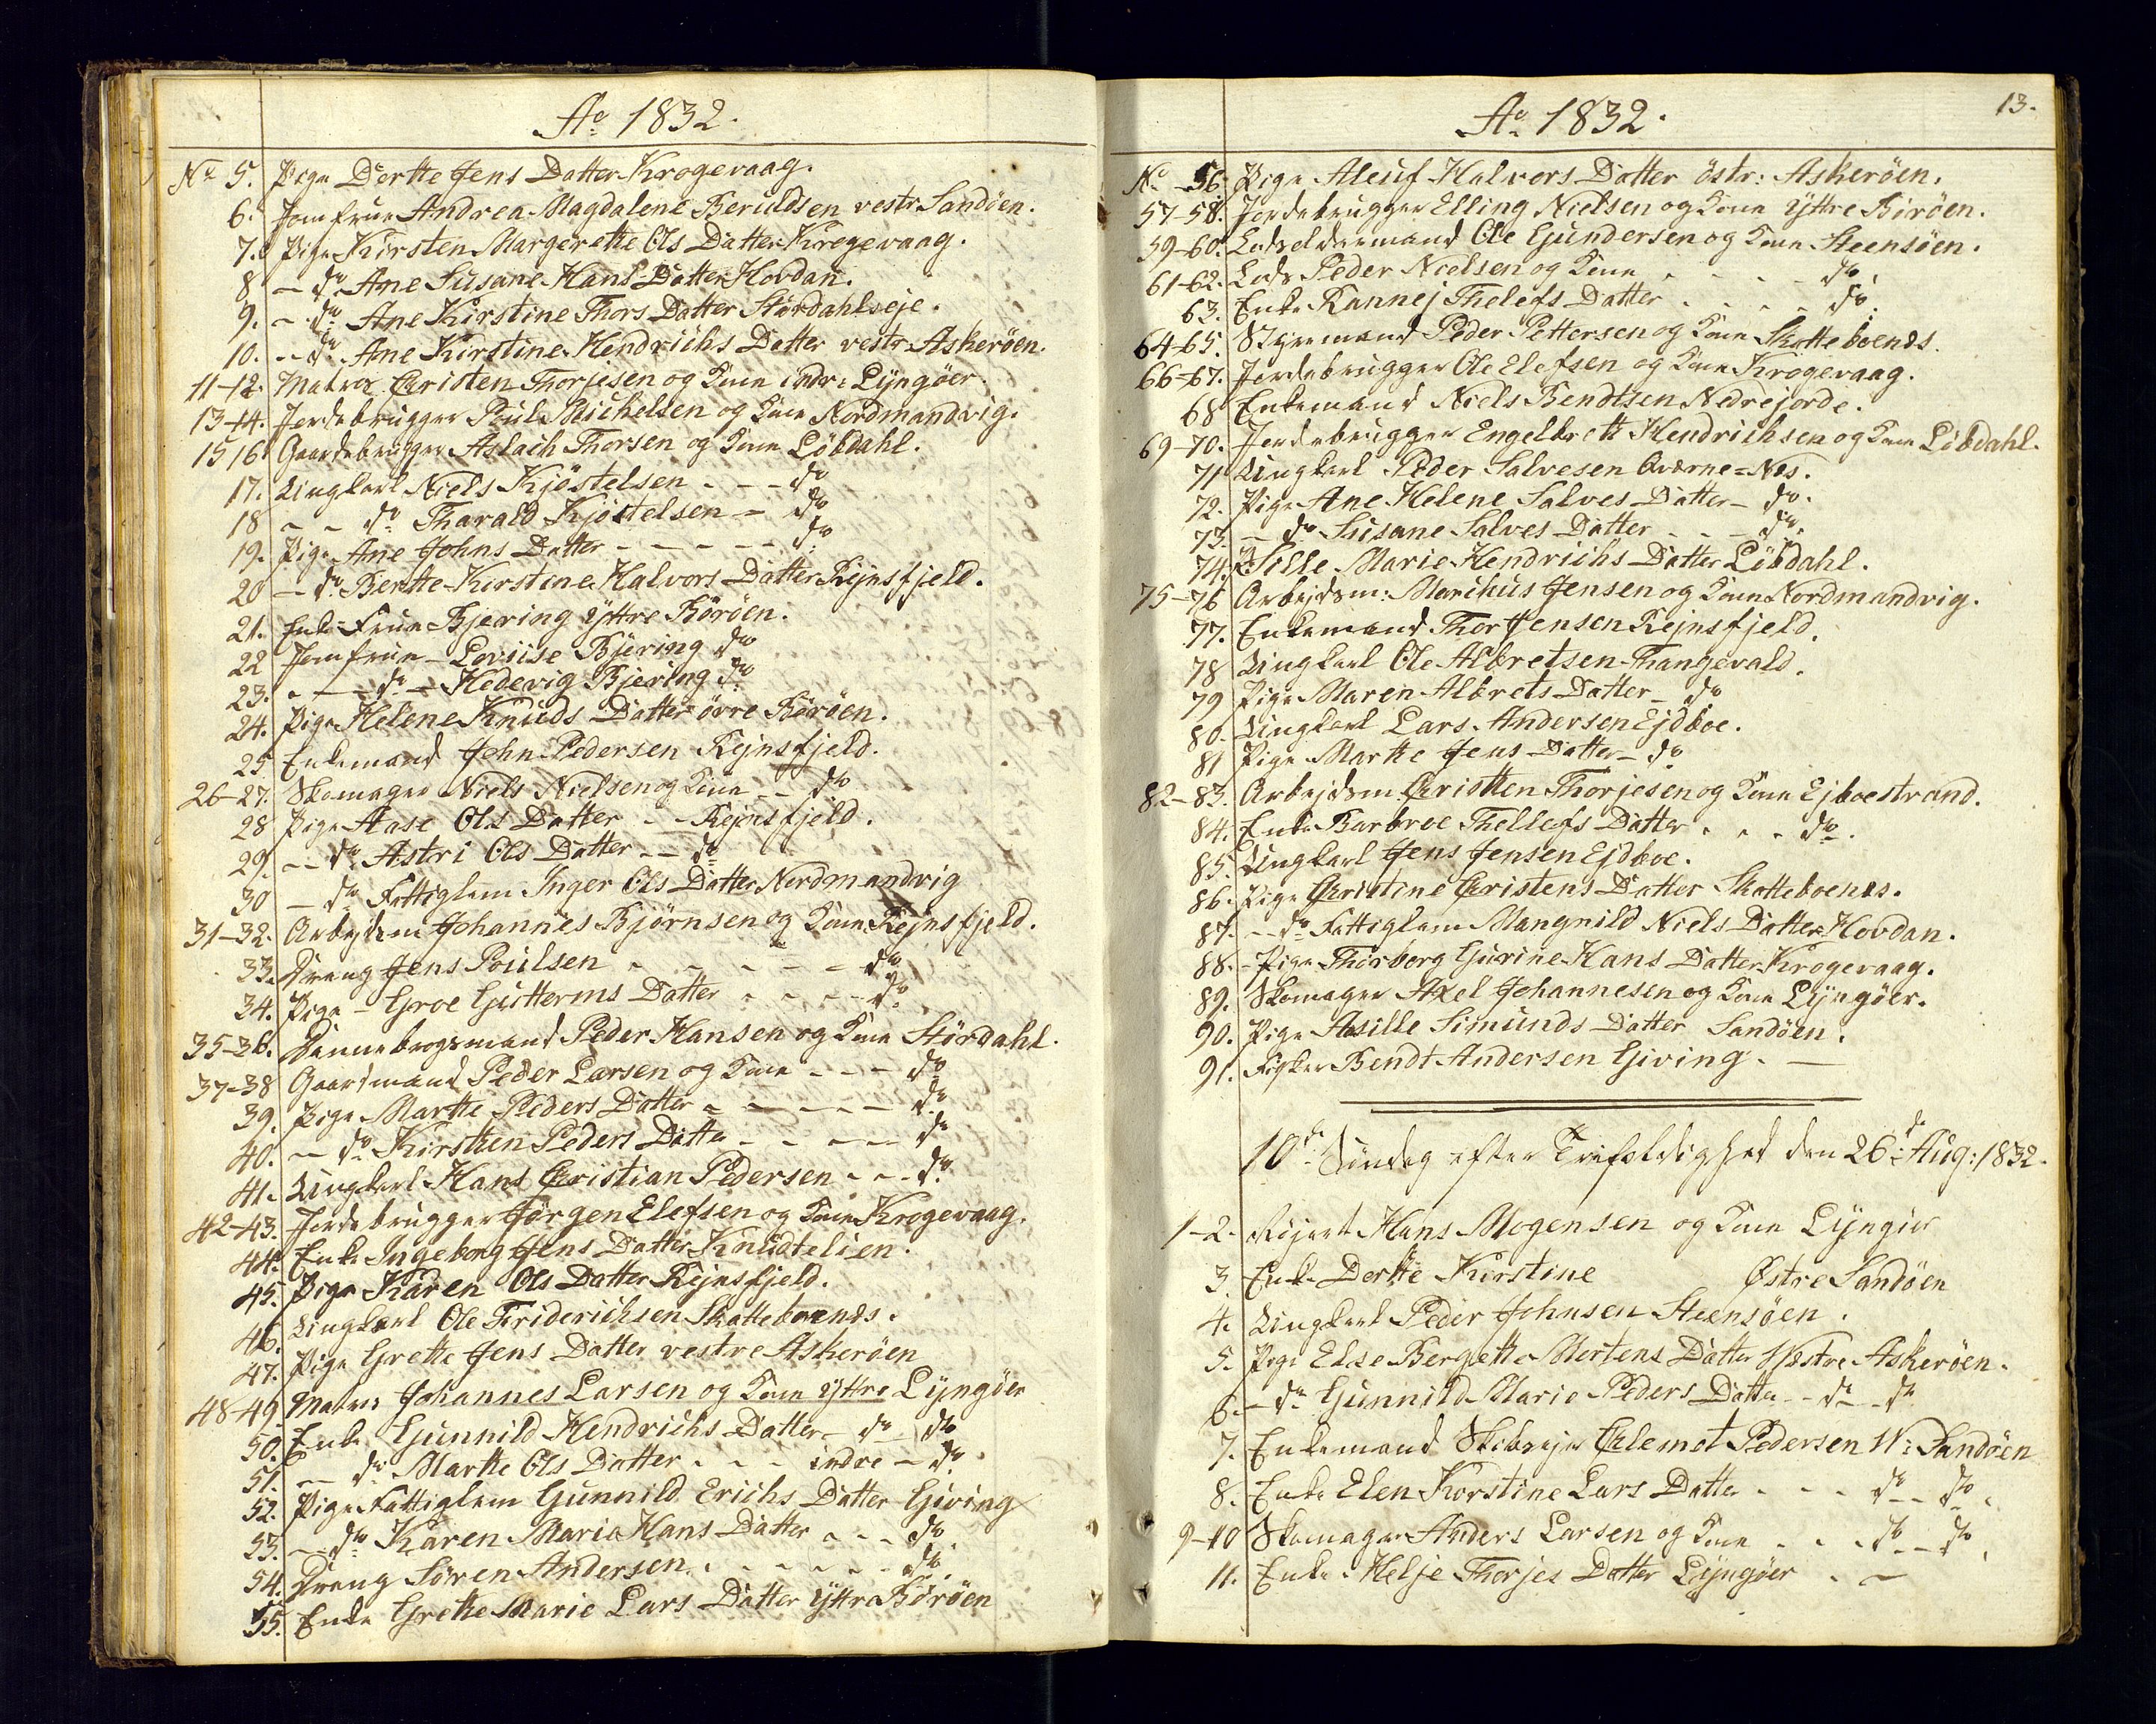 Ao 1832.
No 5. Pige Dorthe Jens Datter Krogevaag.
6. Jomfrue Andrea Magdalene Beruldsen vestr. Sandöen.
7. Pige Kirsten Margerethe Ols Datter Krogevaag.
8 - do Ane Susane Hans Datter Hovdan.
9. - do Ane Kirstine Thors Datter Stördahlseje.
10. - do Ane Kirstine Hendrichs Datter vestr. Askeröen.
11-12. Matros Christen Thorjesen og Kone indr: Lÿngöer.
13-14. Jordebrugger Poul Michelsen og Kone Nordmandvig.
15 16 Gaardebrugger Aslach Thorsen og Kone Löbdahl.
17. Ungkarl Niels Kjöstelsen - - - do
18 - - do Tharald Kjöstelsen - do
19. Pige Ane Johns Datter - - - - - do
20 - do Berthe Kirstine Halvors Datter Rejnsfjeld.
21. Enke-Frue Bjering ÿttre Böröen.
22 Jomfrue - Loviise Bjering do
23. - - - do - Hedevig Bjering do
24. Pige Helene Knuds Datter övre Böröen.
25 Enkemand John Pedersen Rejnsfjeld.
26-27. Skomager Niels Nielsen og Kone - - do
28 Pige Aase Ols Datter - - Rejnsfjeld.
29. - - do Astri Ols Datter - - do
30 - do Fattiglem Inger Ols Datter Nordmandvig
31-32. Arbejdsm Johannes Bjørnsen og Kone Rejnsfjeld.
33. Dreng Jens Poulsen - - - - - do
34. Pige - Groe Gutterms Datter - - - - do
35-36. Dannebrogsmand Peder Hansen og Kone Stördahl.
37-38 Gaardmand Peder Larsen og Kone - - - do
39. Pige Marthe Peders Datter - - - - - do
40. - do Kirsten Peders Datter - - - - do
41. Ungkarl Hans Christian Pedersen - - - do
42-43. Jordebrugger Jörgen Elefsen og Kone Krogevaag.
44. Enke Ingeborg Jens Datter Knudtelien.
45. Pige Karen Ols Datter Rejnsfjeld.
46. Ungkarl Ole Friderichsen Skatteboends.
47. Pige Grethe Jens Datter vestre Askeröen
48-49 Matros Johannes Larsen og Kone ÿttre Lÿngöer
50. Enke Gunnild Hendrichs Datter - do do
51. - - do Marthe Ols Datter - - - indre - do
52. Pige Fattiglem Gunnild Erichs Datter Giving
53. - - do Karen Marie Hans Datter - - - do
54. Dreng Sören Andersen - - - - - - do
55. Enke Grethe Marie Lars Datter ÿttre Böröen
13.
Ao 1832.
No 56. Pige Aleuf Halvors Datter östr: Askeröen.
57-58. Jordebrugger Elling Nielsen og Kone ÿttre Böröen.
59-60. Lodsoldermand Ole Gundersen og Kone Steensöen.
61-62. Lods Peder Nielsen og Kone - - - - do
63. Enke Rannej Thelefs Datter - - - - do
64-65. Styrmand Peder Pettersen og Kone Skatteboends.
66-67. Jordebrugger Ole Elefsen og Kone Krogevaag.
68 Enkemand Niels Bendtsen Nedrejorde.
69-70. Jordebrugger Engelbrett Hendrichsen og Kone Löbdahl.
71 Ungkarl Peder Salvesen Qværne-Nes.
72. Pige Ane Helene Salves Datter - do.
73. - do Susane Salves Datter - - - do
74. P. Sille Marie Hendrichs Datter Löbdahl.
75-76 Arbejdsm: Marchus Jensen og Kone Nordmandvig.
77. Enkemand Thor Jensen Rejnsfjeld.
78 Ungkarl Ole Albretsen Thangevald.
79 Pige Maren Albrets Datter - do
80. Ungkarl Lars Andersen Ejdboe.
81 Pige Marthe Jens Datter - do
82-83. Arbejdsm Christen Thorjesen og Kone Ejboestrand.
84. Enke Barbroe Thellefs Datter - - - do.
85. Ungkarl Jens Jensen Ejdboe.
86. Pige Christine Christens Datter Skatteboends.
87. - - do Fattiglem Mangnild Niels Datter Hovdan.
88. - Pige Thorborg Gurine Hans Datter Krogevaag.
89. Skomager Axel Johannesen og Kone Lÿngöer.
90. Pige Asille Simunds Datter Sandöen.
91. Fisker Bendt Andersen Giving.
10de Söndag efter Trefoldighed den 26de Aug: 1832.
1-2. Hans Mogensen og Kone Lÿngöer
3. Enke Dorthe Kirstine Østre Sandöen
4. Ungkarl Peder Johnsen Steensöen.
5. Pige Else Bergette Mortens Datter Westre Askeröen.
6. - do Gunnild Marie Peders Datter - - do - do
7. Enkemand Skibrejer Clemet Pedersen W: Sandöen
8. Enke Elen Kirstine Lars Datter - - - do - - do
9-10 Skomager Anders Larsen og Kone - - - do - - do
11. Enke Helje Thorjes Datter Lÿngöer - -